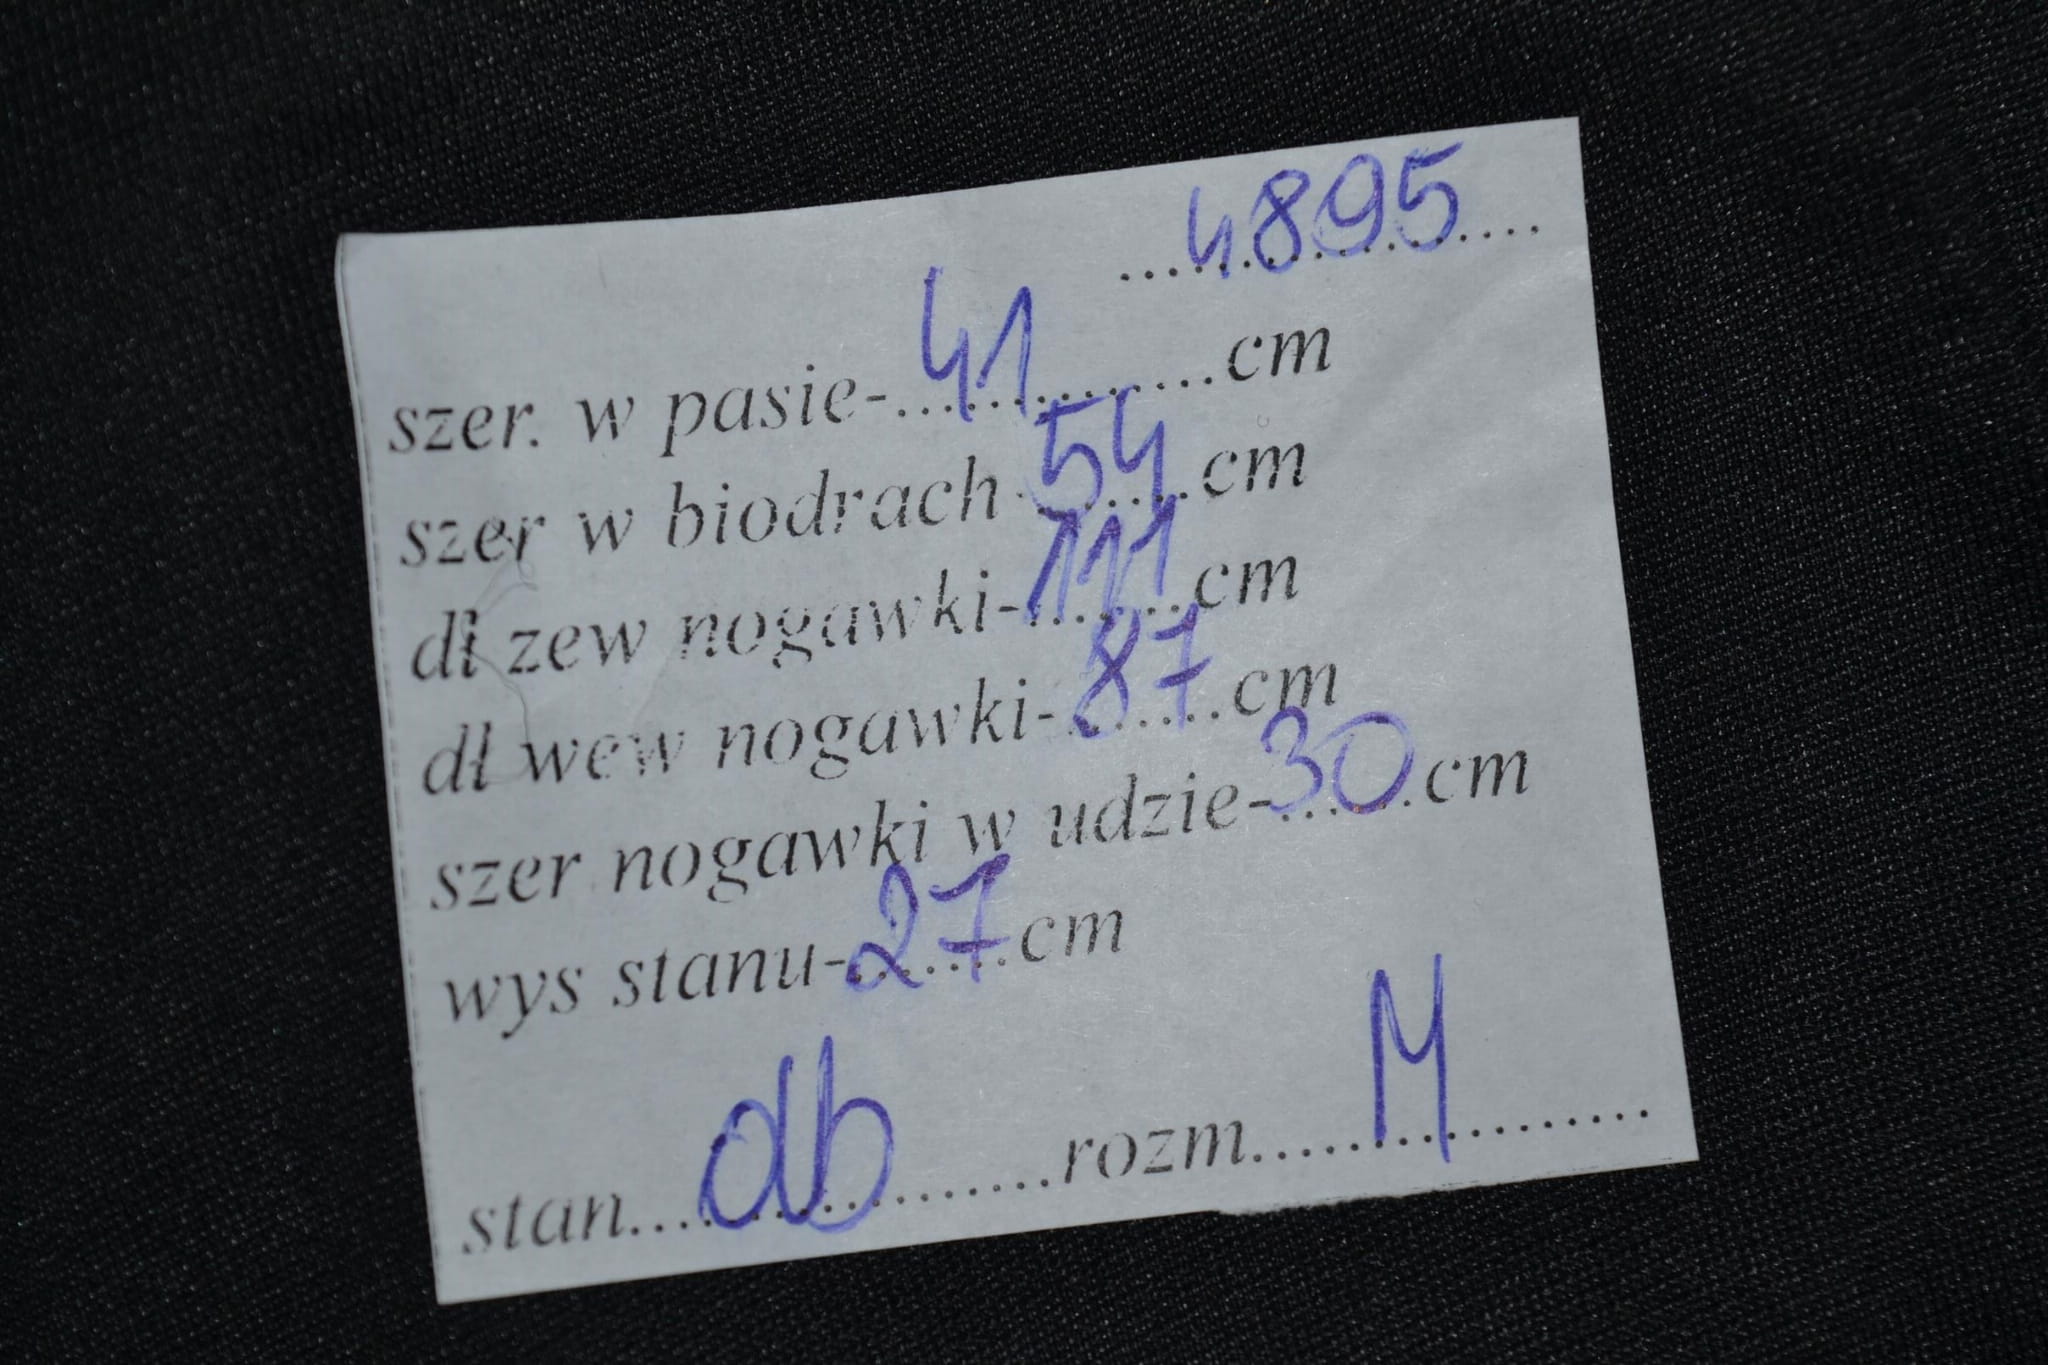 4895
szer. w pasie-41............cm
szer w biodrach-54......cm
dł zew nogawki-111.......cm
dł wew nogawki-87.......cm
szer nogawki w udzie-30......cm
wys stanu-27.......cm
stan....db.................rozm....M.............